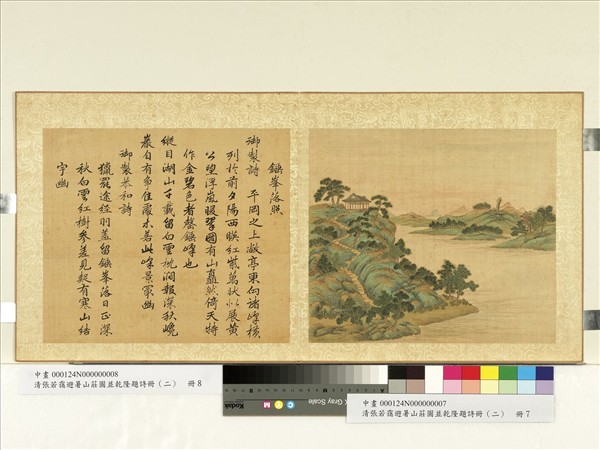 錘峯落照
御製詩 平岡之上敞亭東向諸峰橫
列於前夕陽西映紅紫萬狀似展黃
公望浮嵐暖翠圖有山矗然倚天特
作金碧色者磬錘峰也
縱目湖山千載留白雲枕澗報深秋巉
巖自有爭佳處未若此峰景最幽
御製恭和詩
獵罷途經羽蓋留錘峯落日正深
秋白雲紅樹參差見疑有寒山結
宇幽
中畫 000124N000000008
清張若靄避暑山莊圖並乾隆題詩冊(二) 冊 8
Kodak
Gray Scale
C
M
中畫 000124N000000007
清張若靄避暑山莊圖並乾隆題詩冊(二) 冊 7